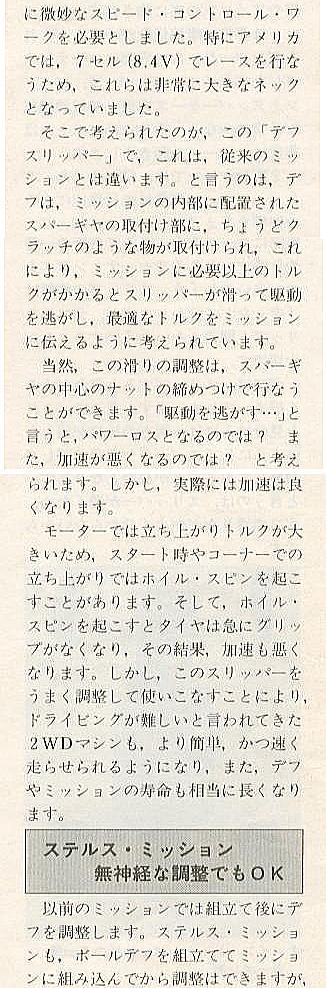 に微妙なスピード・コントロール・ワ
ークを必要としました。特にアメリカ
では，７セル（8.4Ｖ）でレースを行な
うため，これらは非常に大きなネック
となっていました。
そこで考えられたのが，この「デフ
スリッパー」で，これは，従来のミッ
ションとは違います。と言うのは，デ
フは，ミッションの内部に配置された
スパーギヤの取付け部に，ちょうどク
ラッチのような物が取付けられ，これ
により，ミッションに必要以上のトル
クがかかるとスリッパーが滑って駆動
を逃がし，最適なトルクをミッション
に伝えるように考えられています。
当然，この滑りの調整は，スパーギ
ヤの中心のナットの締めつけで行なう
ことができます。「駆動を逃がす…」と
言うと，パワーロスとなるのでは？　ま
た，加速が悪くなるのでは？　と考え
られます。しかし，実際には加速は良
くなります。
モーターでは立ち上がりトルクが大
きいため，スタート時やコーナーでの
立ち上がりではホイル・スピンを起こ
すことがあります。そして，ホイル・
スピンを起こすとタイヤは急にグリッ
プがなくなり，その結果，加速も悪く
なります。しかし，このスリッパーを
うまく調整して使いこなすことにより，
ドライビングが難しいと言われてきた
２ＷＤマシンも，より簡単，かつ速く
走らせられるようになり，また，デフ
やミッションの寿命も相当に長くなり
ます。
ステルス・ミッション
無神経な調整でもＯＫ
以前のミッションでは組立て後にデ
フを調整します。ステルス・ミッショ
ンも，ボールデフを組立ててミッショ
ンに組み込んでから調整はできますが，